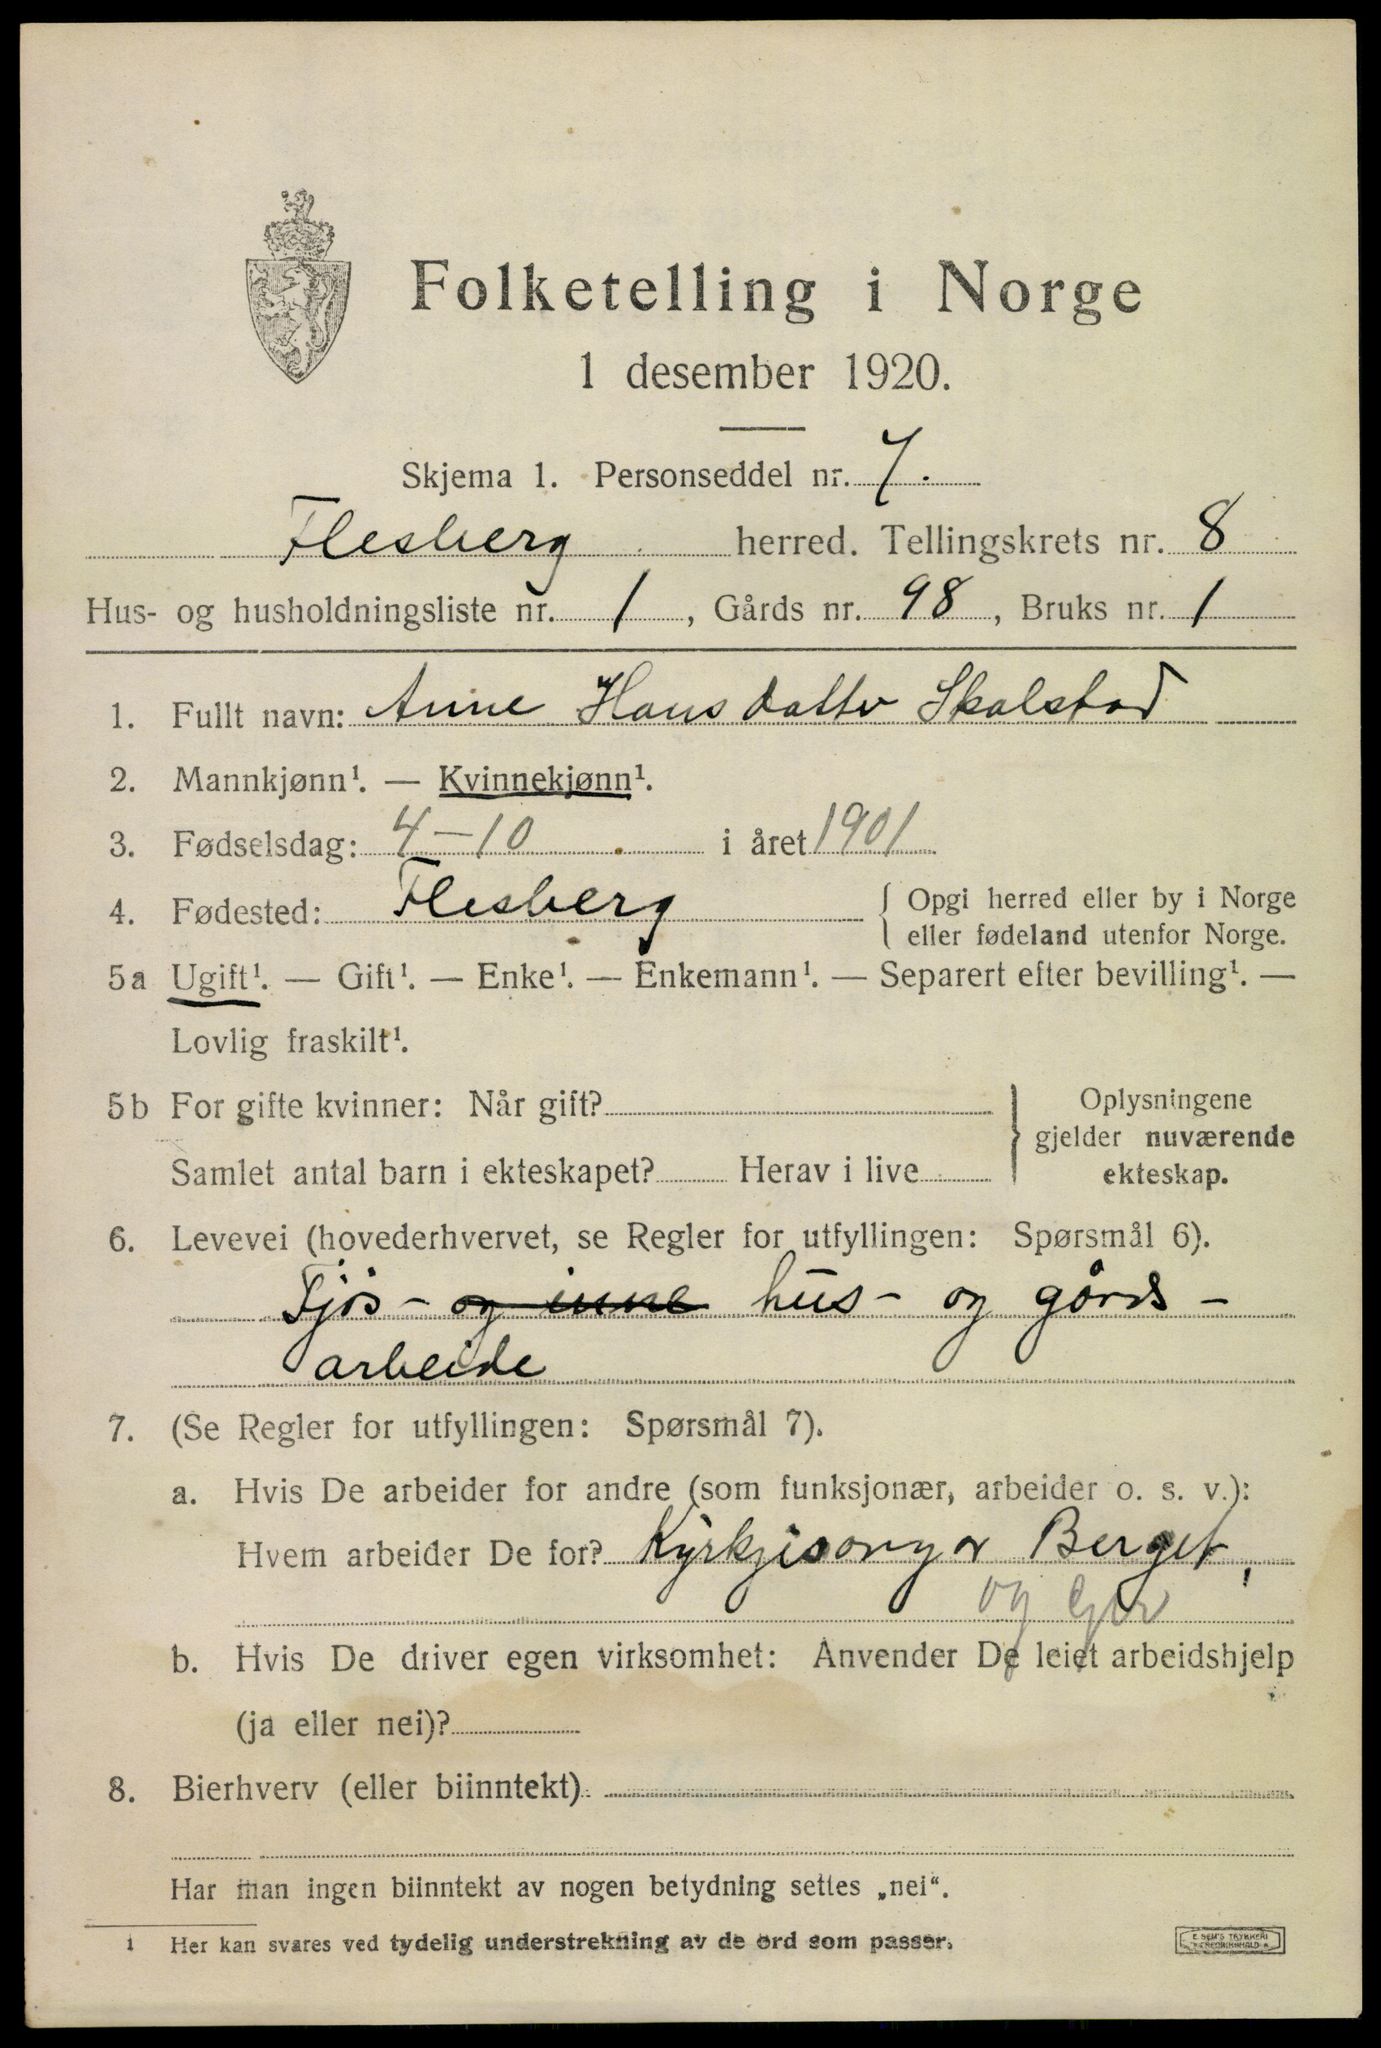 Folketelling i Norge
1 desember 1920.
Skjema 1. Personseddel nr. 7.
Flesberg herred. Tellingskrets nr. 8
Hus- og husholdningsliste nr. 1, Gårds nr. 98, Bruks nr. 1
1. Fullt navn: Anne Hansdatter Skalstad
2. Mannkjønn¹. — Kvinnekjønn¹.
3. Fødselsdag: 4-10 i året 1901
4. Fødested: Flesberg { Opgi herred eller by i Norge
eller fødeland utenfor Norge.
5a Ugift¹. — Gift¹. — Enke¹. — Enkemann¹. — Separert efter bevilling¹. —
Lovlig fraskilt¹.
5b For gifte kvinner: Når gift? } Oplysningene
gjelder nuværende
Samlet antal barn i ekteskapet? Herav i live
ekteskap.
6. Levevei (hovederhvervet, se Regler for utfyllingen: Spørsmål 6).
Fjøs- og inne hus- og gårds-
arbeide
7. (Se Regler for utfyllingen: Spørsmål 7).
a. Hvis De arbeider for andre (som funksjonær, arbeider o. s. v.):
Hvem arbeider De for? Kyrkjesongar Berget,
og
b. Hvis De driver egen virksomhet: Anvender De leiet arbeidshjelp
(ja eller nei)?
8. Bierhverv (eller biinntekt)
Har man ingen biinntekt av nogen betydning settes „nei“.
¹ Her kan svares ved tydelig understrekning av de ord som passer.
E. SEM'S TRYKKERI
FREDRIKSHALD